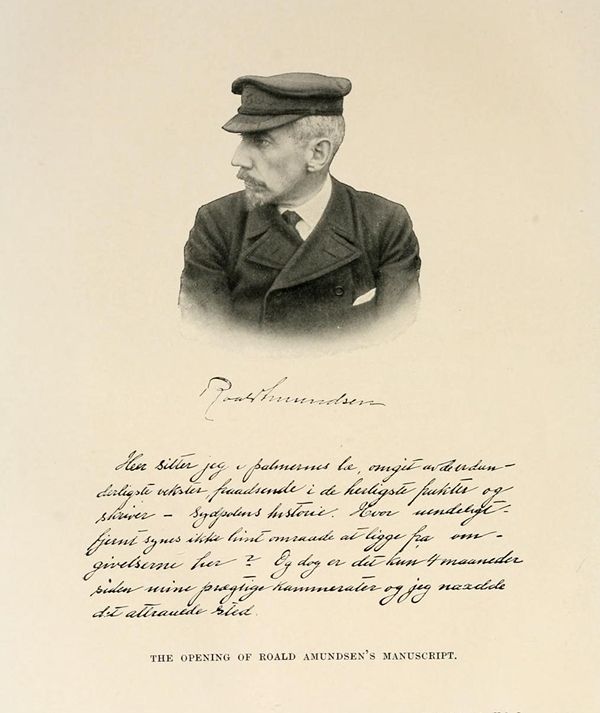 Roald Amundsen
Her sitter jeg i palmernes læ, omgit av de vidun-
derligste vekster, fraadsende i de herligste frukter og
skriver – Sydpolens historie. Hvor uendeligt-
fjernt synes ikke hint omraade at ligge fra om-
givelserne her? Og dog er det kun 4 maaneder
siden mine prægtige kammerater og jeg naadde
det attraaede sted.
THE OPENING OF ROALD AMUNDSEN'S MANUSCRIPT.